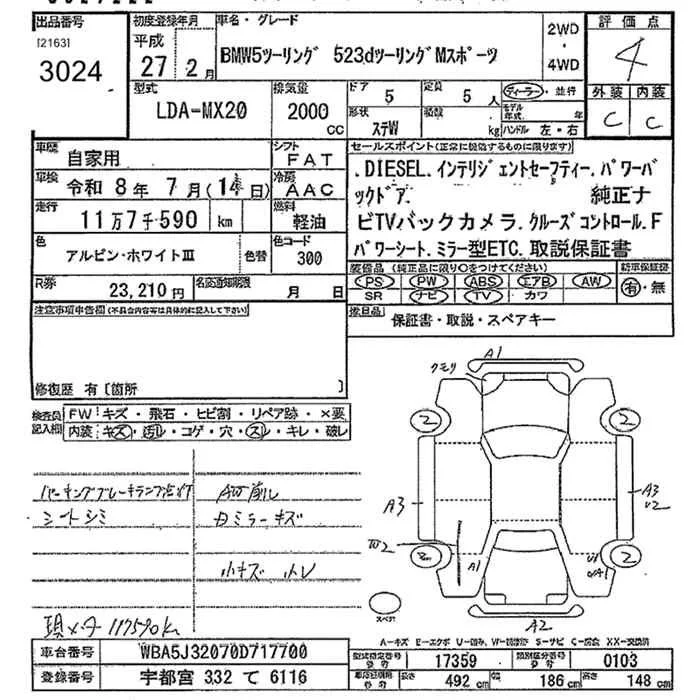 出品番号
[2163]
3024
初度登録年月
平成
27 2月
車名・グレード
BMW5ツーリング 523dツーリングMスポーツ
2WD
・
4WD
評価点
4
外装 内装
C C
型式
LDA-MX20
排気量
2000
CC
ドア
5
定員
5 人
形状
ステW
積数
kg
ディーラー・並行
モデル年式 年
ハンドル 左・右
車歴
自家用
シフト
FAT
車検
令和 8年 7月(14日)
冷房
AAC
走行
11万7千590 km
燃料
軽油
色
アルピン・ホワイトⅢ
色替
色コード
300
R券
23,210円
名変通知期限
月 日
セールスポイント(正常に機能するものに限ります)
.DIESEL.インテリジェントセーフティー.パワーバ
ックドア. 純正ナ
ビTVバックカメラ.クルーズコントロール.F
パワーシート.ミラー型ETC.取説保証書
装備品(純正品に限り○をつけてください)
PS PW ABS エアB AW
SR ナビ TV カワ
新車保証書
有・無
後日品
保証書・取説・スペアキー
注意事項申告欄(不具合内容等は具体的に記入して下さい)
修復歴 有〔箇所 〕
検査員記入欄
FW キズ・飛石・ヒビ割・リペア跡・×要
内装 キズ・汚れ・コゲ・穴・スレ・キレ・破レ
パーキングブレーキランプ点灯
シートシミ
AW削レ
日ミラーキズ
小キズ トレ
現メータ 117590km
クモリ
A1
2
2
A3
A3
U2
W2
A1
U1
2
2
スペア
A2
A-キズ E-エクボ U-凹み W-補修跡 S-サビ C-腐食 XX-交換済
車台番号
WBA5J32070D717700
登録番号
宇都宮 332 て 6116
型式指定番号
17359
類別区分番号
0103
長さ
492 cm
幅
186 cm
高さ
148 cm